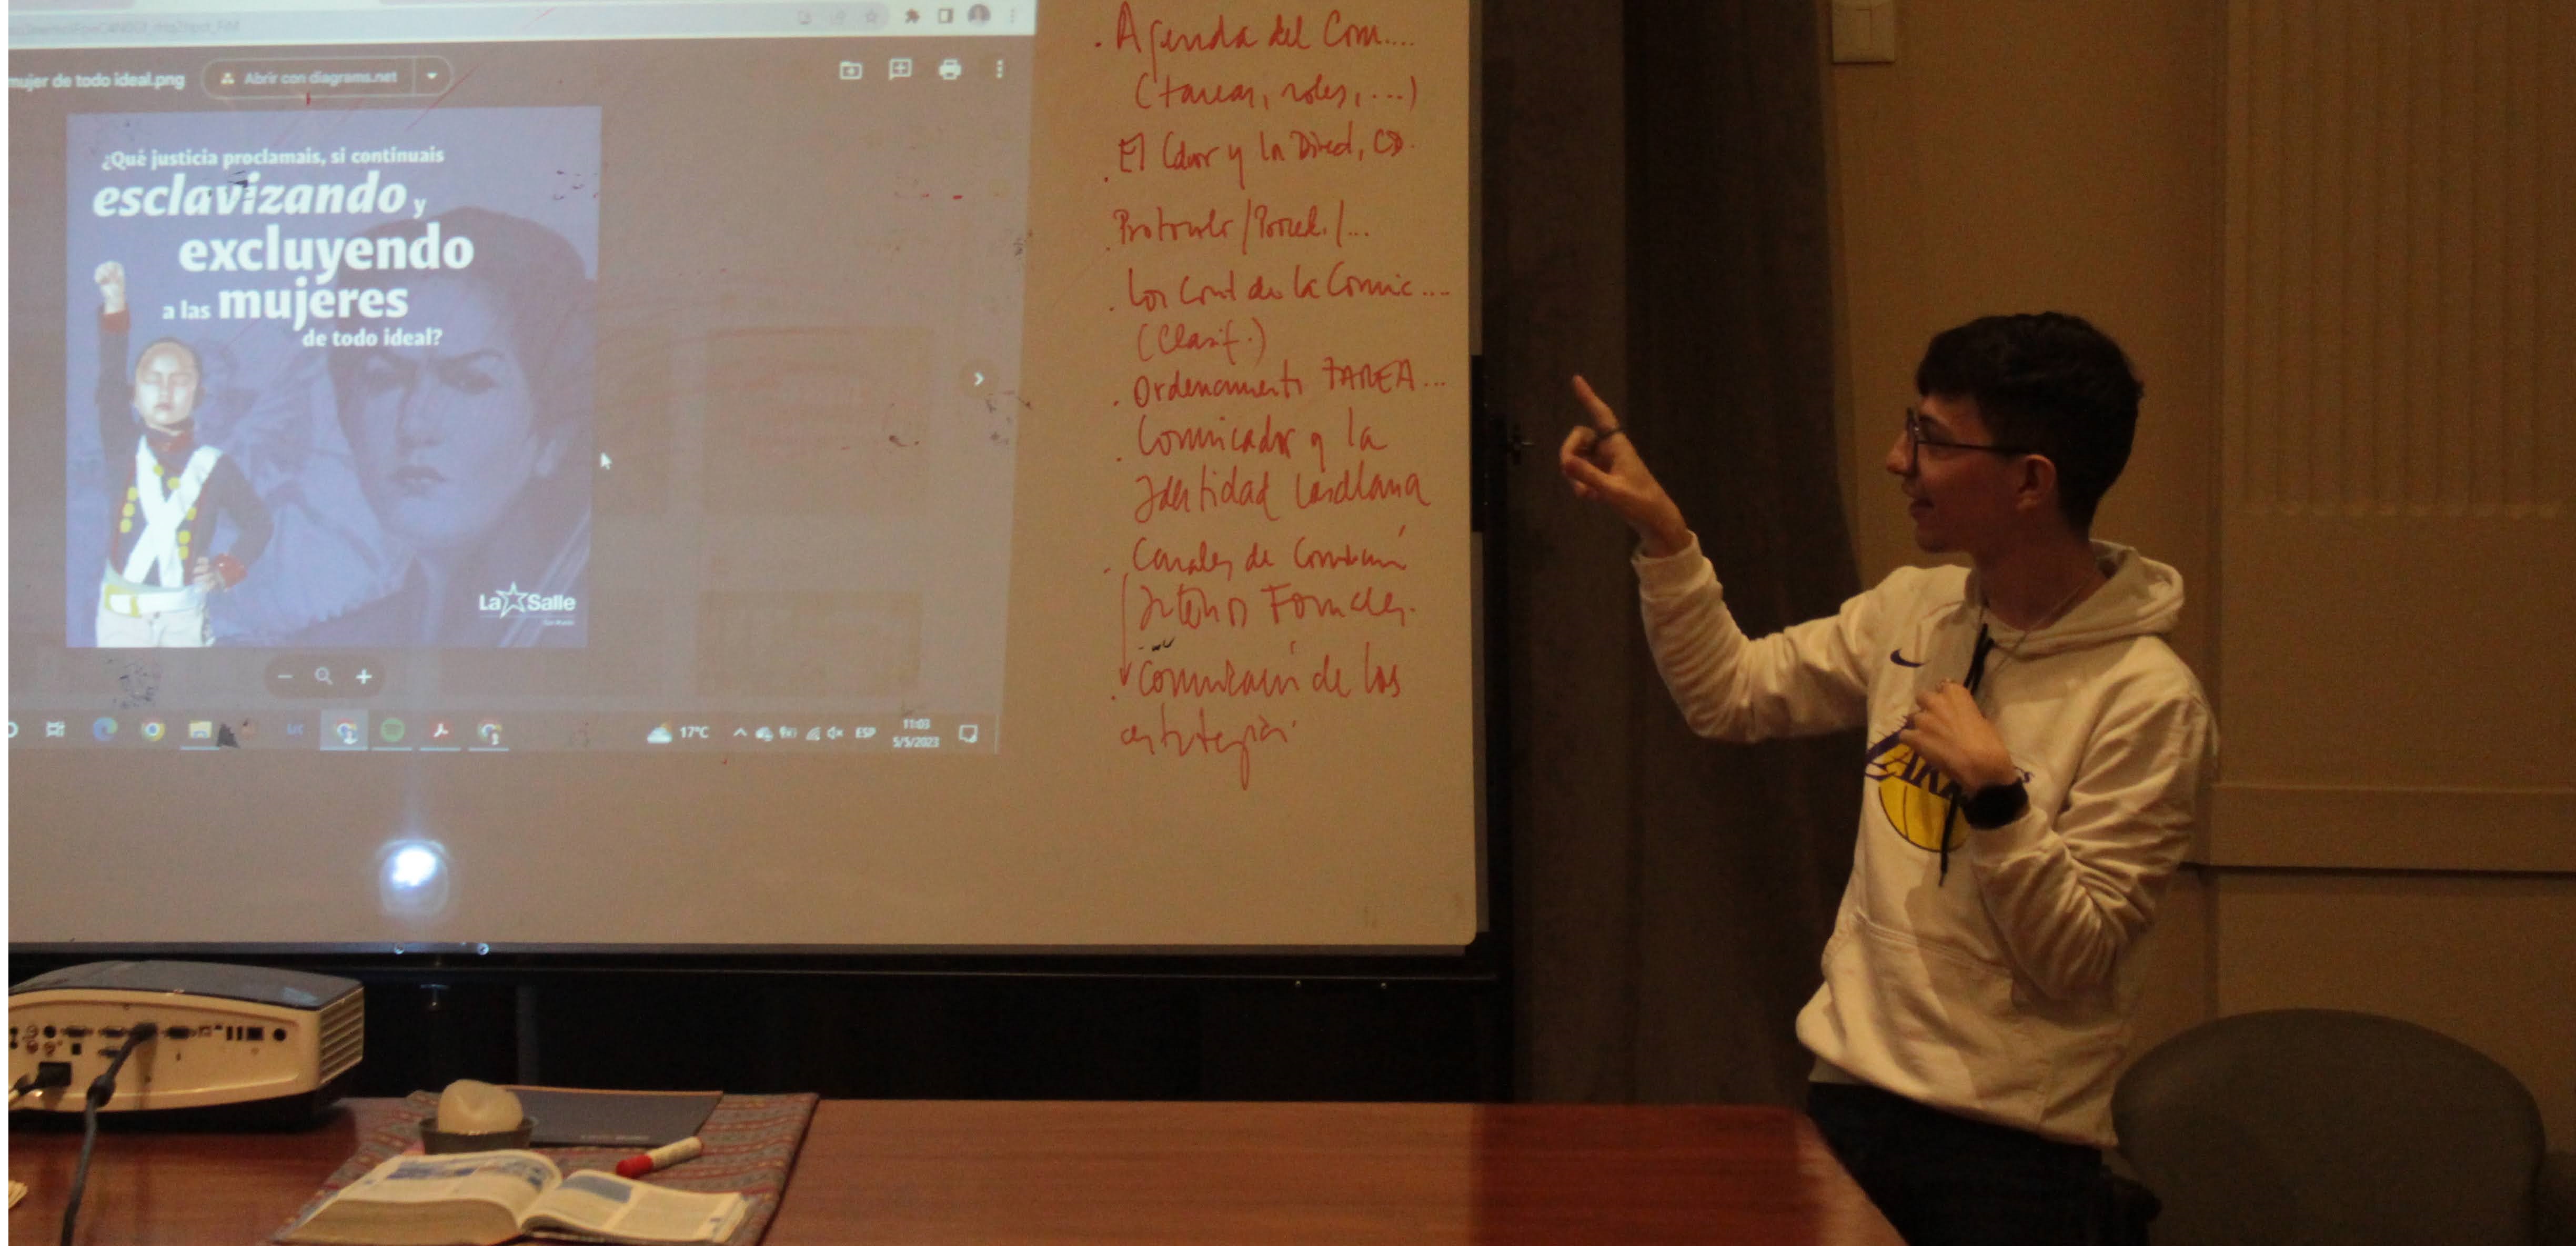 mujer de todo ideal.png
Abrir con diagrams.net
¿Qué justicia proclamais, si continuais
esclavizando y
excluyendo
a las mujeres
de todo ideal?
La Salle
17°C
ESP
11:03
5/5/2023
. Agenda del Com....
(tareas, roles, ...)
. El y la
/ /...
. de la
(Clasif.)
. Ordenamiento TAREA ...
. Comunicador y la
Identidad Lasallana
. Canales de
Formales.
. Comunicación de las
estrategias.